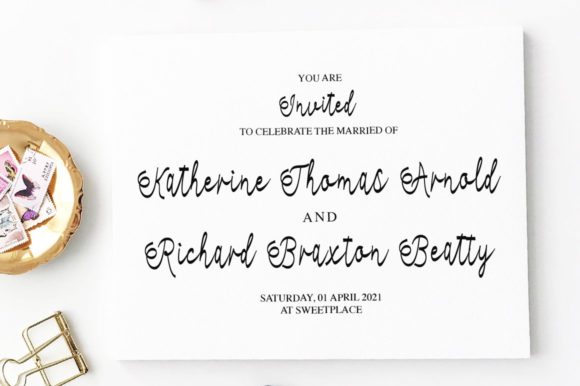 YOU ARE
Invited
TO CELEBRATE THE MARRIED OF
Katherine Thomas Arnold
AND
Richard Braxton Beatty
SATURDAY, 01 APRIL 2021
AT SWEETPLACE